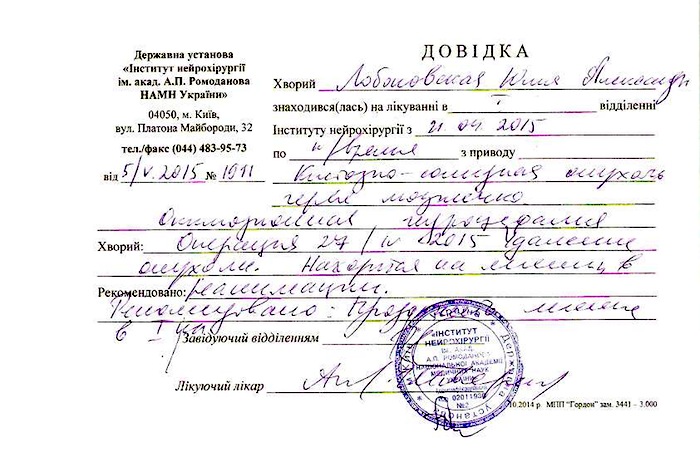 Державна установа
«Інститут нейрохірургії
ім. акад. А.П. Ромоданова
НАМН України»
04050, м. Київ,
вул. Платона Майбороди, 32
тел./факс (044) 483-95-73
від 5/V.2015 № 1911
ДОВІДКА
Хворий Лобановская Юлия
знаходився(лась) на лікуванні в I відділенні
Інституту нейрохірургії з 21.04.2015
по н/время з приводу
Кистозно-солидная опухоль
червя мозжечка
Окклюзионная гидроцефалия
Хворий: Операция 27/IV-2015 Удаление
опухоли. Находится на лечении в
Рекомендовано: реанимации.
Рекомендовано:
Завідувач відділенням
Лікуючий лікар
ІНСТИТУТ
НЕЙРОХІРУРГІЇ
ІМ. АКАД.
А.П. РОМОДАНОВА
НАЦІОНАЛЬНОЇ АКАДЕМІЇ
МЕДИЧНИХ НАУК
УКРАЇНИ
№2
10.2014 р. МПП "Гордон" зам. 3441 – 3.000